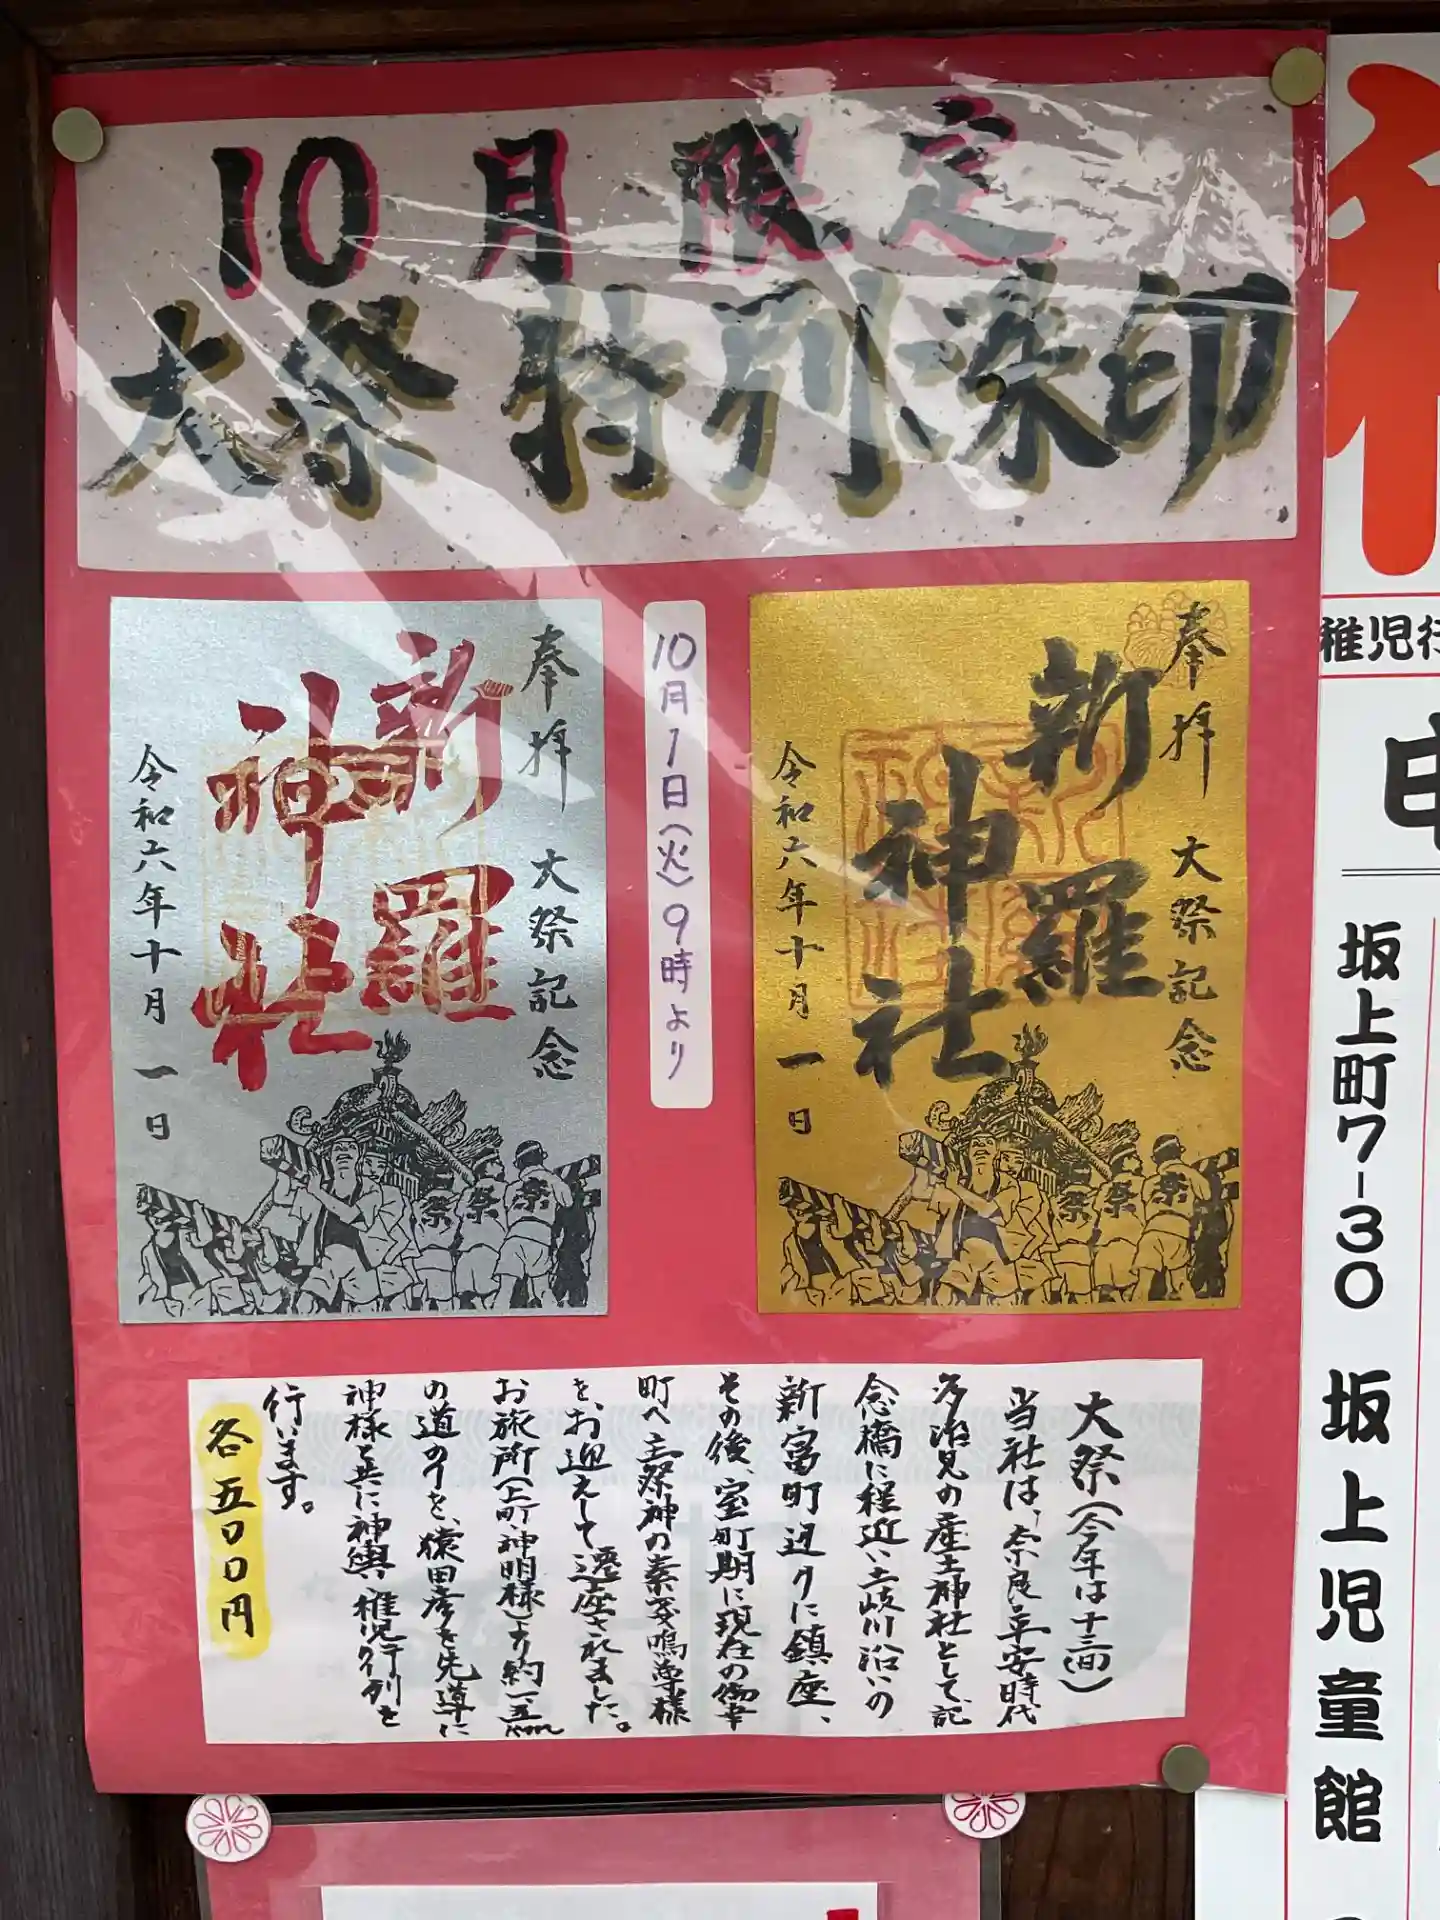 10月限定
大祭 特別御朱印
奉拝 大祭記念
新羅
神社
令和六年十月一日
10月1日(火)9時より
奉拝 大祭記念
新羅
神社
令和六年十月一日
祭
祭
祭
祭
祭
祭
大祭(今年は十三(日))
当社は、奈良・平安時代
多治見の産土神社として、記
念橋に程近い土岐川沿いの
新富町辺りに鎮座、
その後、室町期に現在の御幸
町へ主祭神の素戔嗚尊様
をお迎えして遷座されました。
お旅所(上町・神明様)より約一・五km
の道のりを、猿田彦を先導に
神様と共に神輿、稚児行列を
行います。
各五〇〇円
稚児行
申
坂上町7-30 坂上児童館